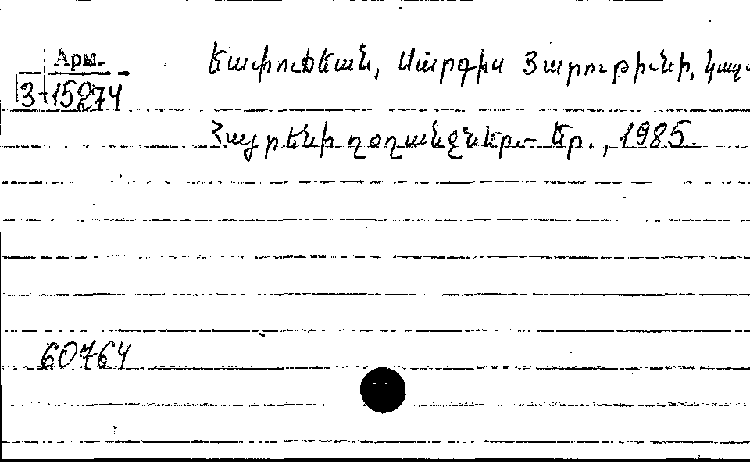 Арм.
3-15274
Եափուճեան, Սարգիս Յարութիւնի, կազ.
Հայրենի ղօղանջներ.- Եր., 1985.
60764